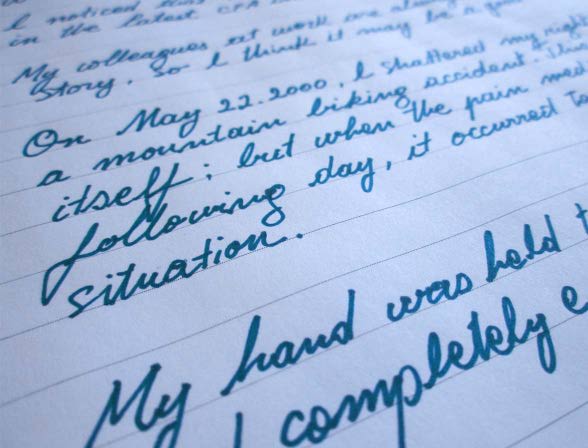 I noticed this
in the latest CPA
My colleagues at work are
story, so I think it may be a
On May 22.2000, I shattered my right
a mountain biking accident. This
itself; but when the pain med
following day, it occurred to
situation.
My hand was held t
I completely e